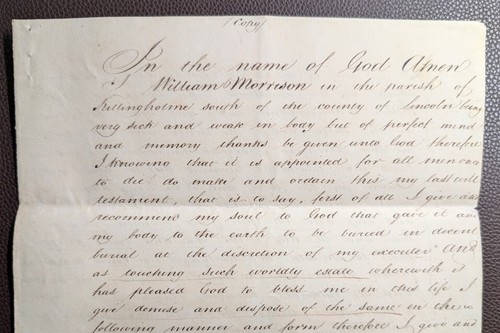 (Copy)
In the name of God Amen
William Morrison in the parish of
Killingholme south of the county of Lincoln being
very sick and weak in body but of perfect mind
and memory thanks be given unto God therefore
I knowing that it is appointed for all men once
to die do make and ordain this my last will
testament, that is to say, first of all I give and
recommend my soul to God that gave it and
my body to the earth to be buried in decent
burial at the discretion of my executor And
as touching such worldly estate wherewith it
has pleased God to bless me in this life I
give demise and dispose of the same in the
following manner and form therefore I give and